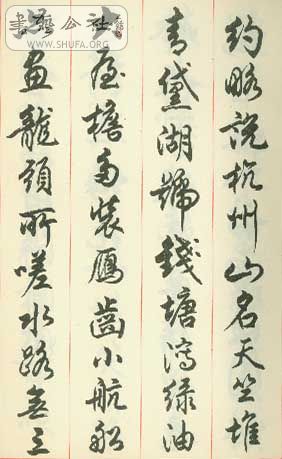 約略說杭州山名天竺堆
青黛湖號錢塘瀉綠油
大屋檐多裝鴈齒小航船
畫龍頭所嗟水路無三
書藝公社
WWW.SHUFA.ORG